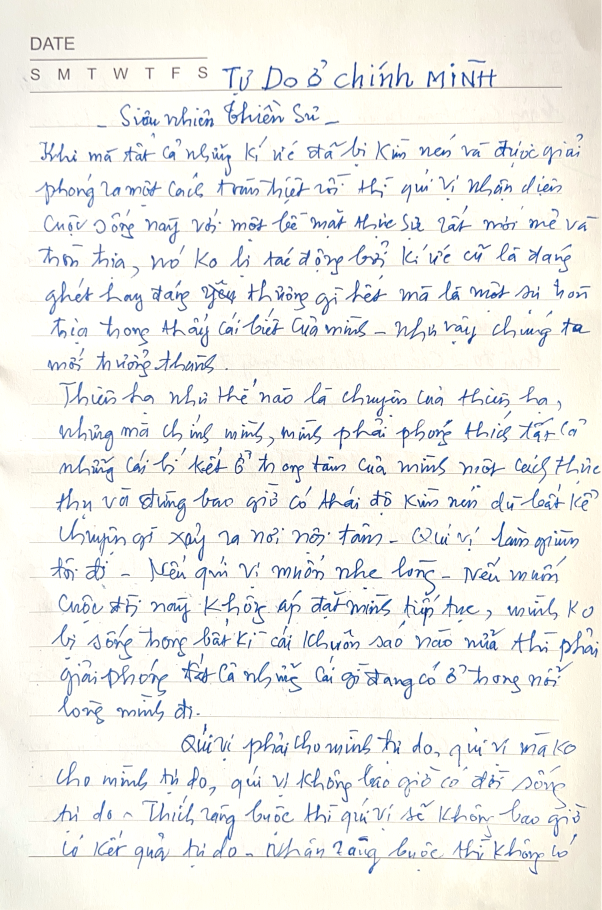 DATE
S M T W T F S Tự Do ở chính MÌNH
- Siêu nhiên Thiền Sư -
Khi mà tất cả những kí ức đã bị kìm nén và được giải
phóng ra một cách trân biệt rồi thì quí vị nhận diện
cuộc sống này với một bề mặt thực sự rất mới mẻ và
hồn thịa, nó ko bị tác động bởi kí ức cũ là đáng
ghét hay đáng yêu thương gì hết mà là một sự hồn
thịa trong thấy cái biết của mình - như vậy chúng ta
mới trưởng thành.
Thiên hạ như thế nào là chuyện của thiên hạ,
nhưng mà chính mình, mình phải phóng thích tất cả
những cái bí kết ở trong tâm của mình một cách thức
thụ và đừng bao giờ có thái độ kìm nén dù bất kể
chuyện gì xảy ra nơi nội tâm - Quí vị làm giùm
tôi đi - Nếu quí vị muốn nhẹ lòng - Nếu muốn
cuộc đời này không áp đặt mình tiếp tục, mình ko
bị sống trong bất kì cái khuôn sáo nào nữa thì phải
giải phóng tất cả những cái gì đang có ở trong nỗi
lòng mình đi.
Quí vị phải cho mình tự do, quí vị mà ko
cho mình tự do, quí vị không bao giờ có đời sống
tự do - Thích ràng buộc thì quí vị sẽ không bao giờ
có kết quả tự do - Nhân ràng buộc thì không có